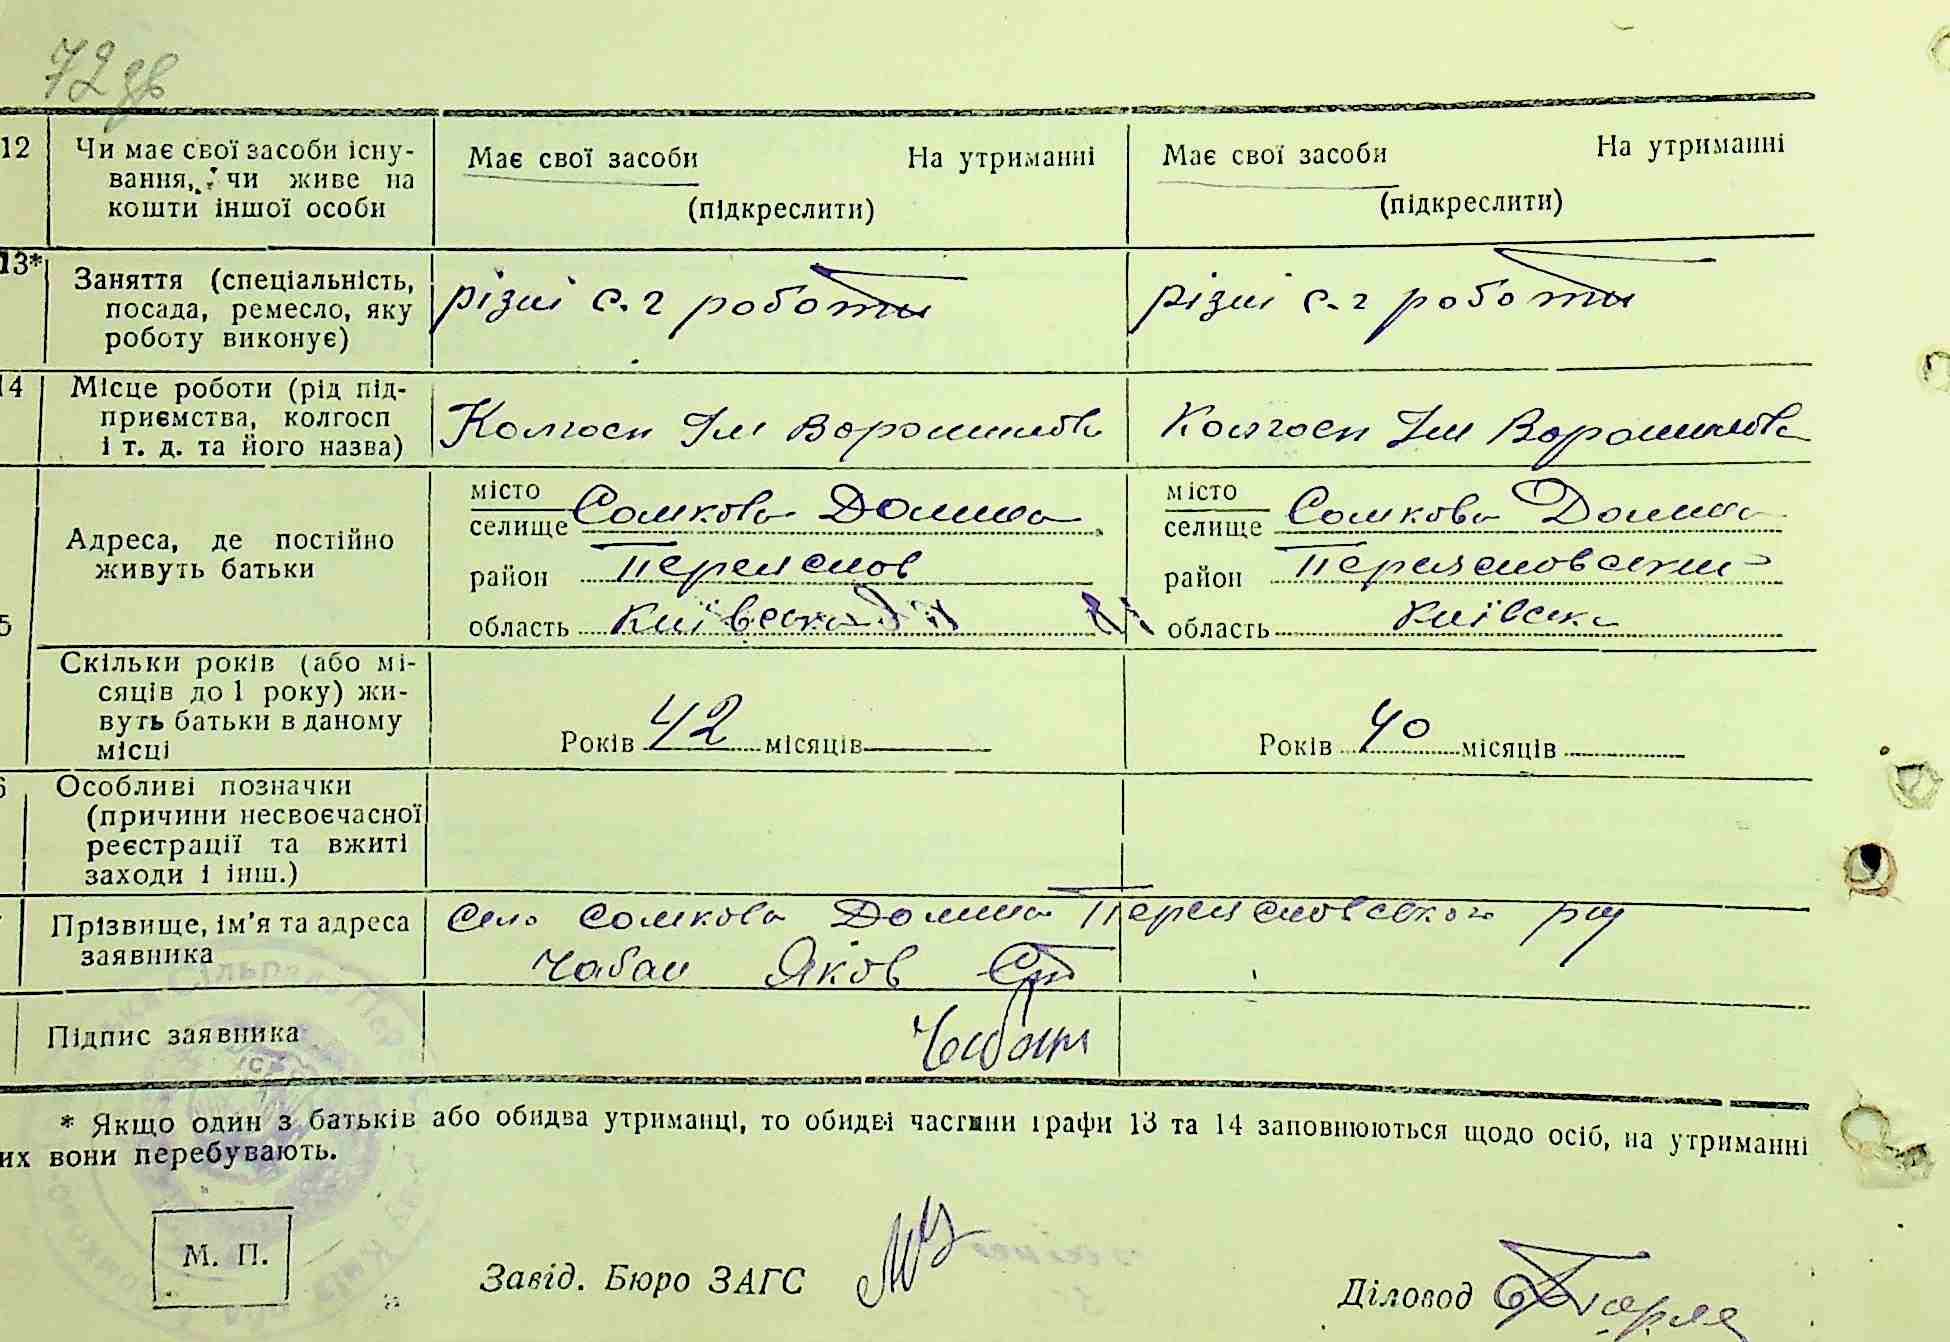 72 зв
12 Чи має свої засоби існу-
вання, чи живе на
кошти іншої особи
Має свої засоби На утриманні
(підкреслити)
Має свої засоби На утриманні
(підкреслити)
13* Заняття (спеціальність,
посада, ремесло, яку
роботу виконує)
різні с.г роботи
різні с.г роботи
14 Місце роботи (рід під-
приємства, колгосп
і т. д. та його назва)
Колгосп Ім Ворошилова
Колгосп Ім Ворошилова
5
Адреса, де постійно
живуть батьки
місто
селище Сомкова Долина
район Переяслов
область Київська
місто
селище Сомкова Долина
район Переясловский
область Київська
Скільки років (або мі-
сяців до 1 року) жи-
вуть батьки в даному
місці
Років 42 місяців
Років 40 місяців
6 Особливі позначки
(причини несвоєчасної
реєстрації та вжиті
заходи і інш.)
Прізвище, ім'я та адреса
заявника
Село Сомкова Долина Переясловського р-ну
Чабан Яків Ст
Підпис заявника
Чабан
* Якщо один з батьків або обидва утриманці, то обидві частини графи 13 та 14 заповнюються щодо осіб, на утриманні
их вони перебувають.
М. П.
Завід. Бюро ЗАГС
Діловод